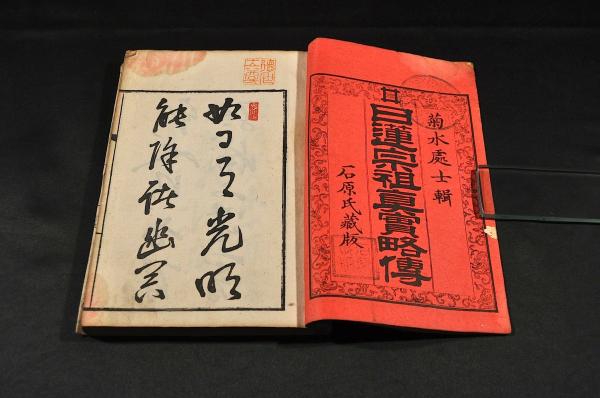 菊水處士輯
日蓮宗祖真實略傳
石原氏藏版
如日月光明
能除諸幽冥